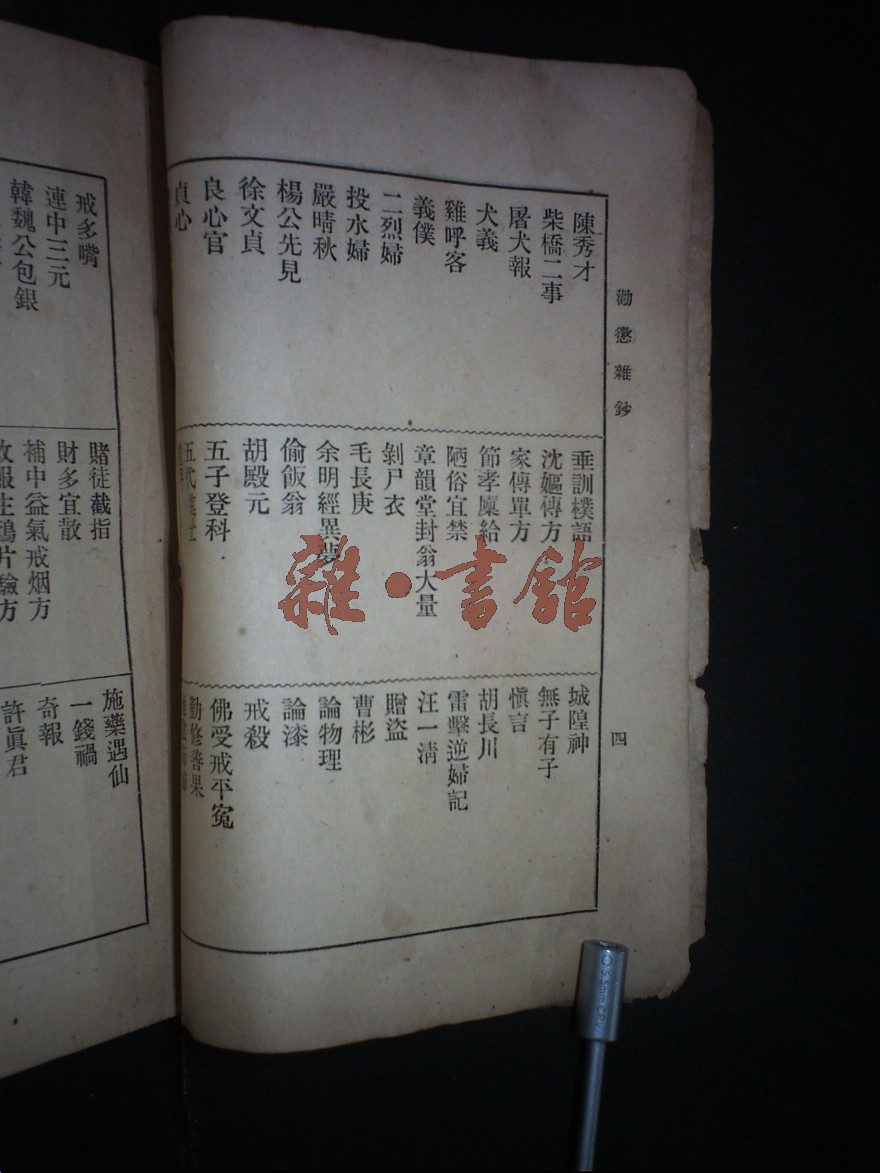 勸懲雜鈔
四
陳秀才
柴橋二事
屠犬報
犬義
雞呼客
義僕
二烈婦
投水婦
嚴晴秋
楊公先見
徐文貞
良心官
貞心
垂訓樸語
沈嫗傳方
家傳單方
節孝廩給
陋俗宜禁
章韻堂封翁大量
剝尸衣
毛長庚
余明經異夢
偷飯翁
胡殿元
五子登科
五代進士
城隍神
無子有子
愼言
胡長川
雷擊逆婦記
汪一清
贈盜
曹彬
論物理
論漆
戒殺
佛受戒平冤
勤修善果
戒多嘴
連中三元
韓魏公包銀
賭徒截指
財多宜散
補中益氣戒烟方
施藥遇仙
一錢禍
奇報
許眞君
雜·書館